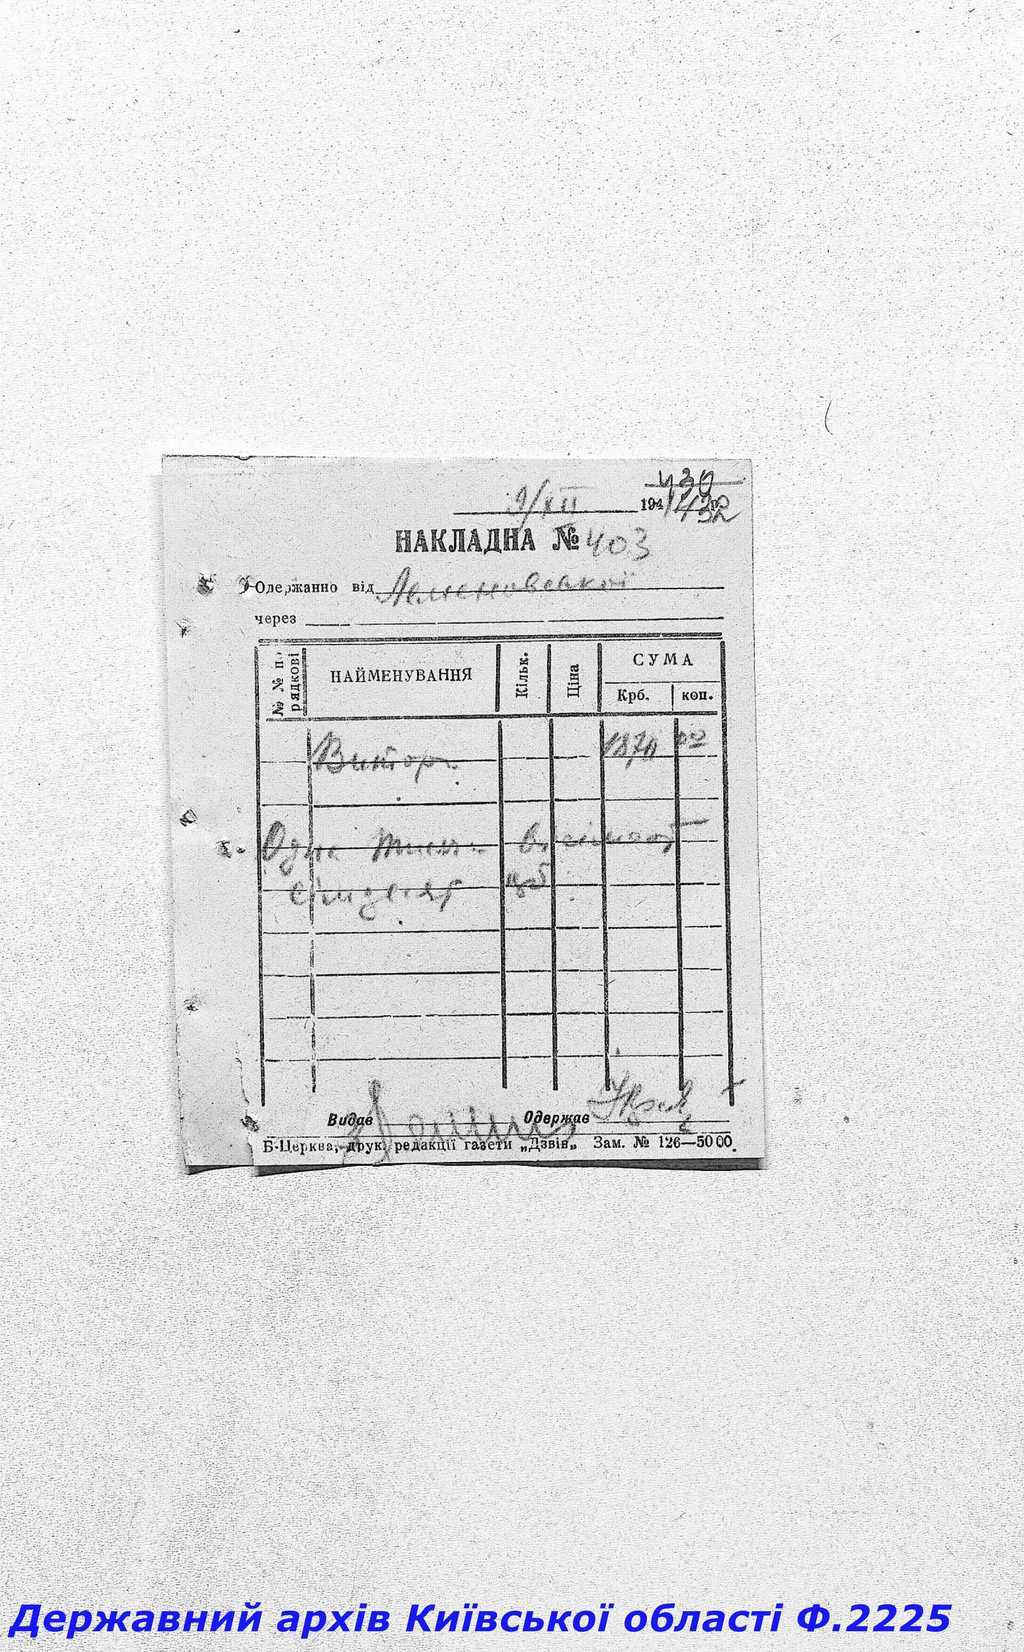 430
9/XII 194 1432
НАКЛАДНА № 403
Одержанно від
через
№ № п. рядкові
НАЙМЕНУВАННЯ
Кільк.
Ціна
СУМА
Крб.
коп.
1870 00
Одна тисяч вісімсот
сімдесят крб
Видав
Одержав
Б-Церква, друк. редакції газети „Дзвін„ Зам. № 126—5000.
Державний архів Київської області Ф.2225